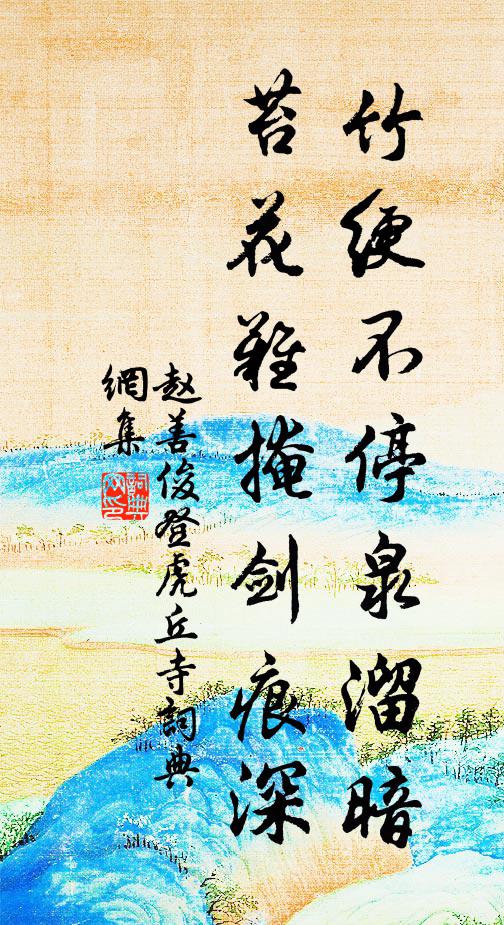 竹绠不停泉溜暗
苔花难掩剑痕深
赵善俊登虎丘寺詞典
網集
詞典